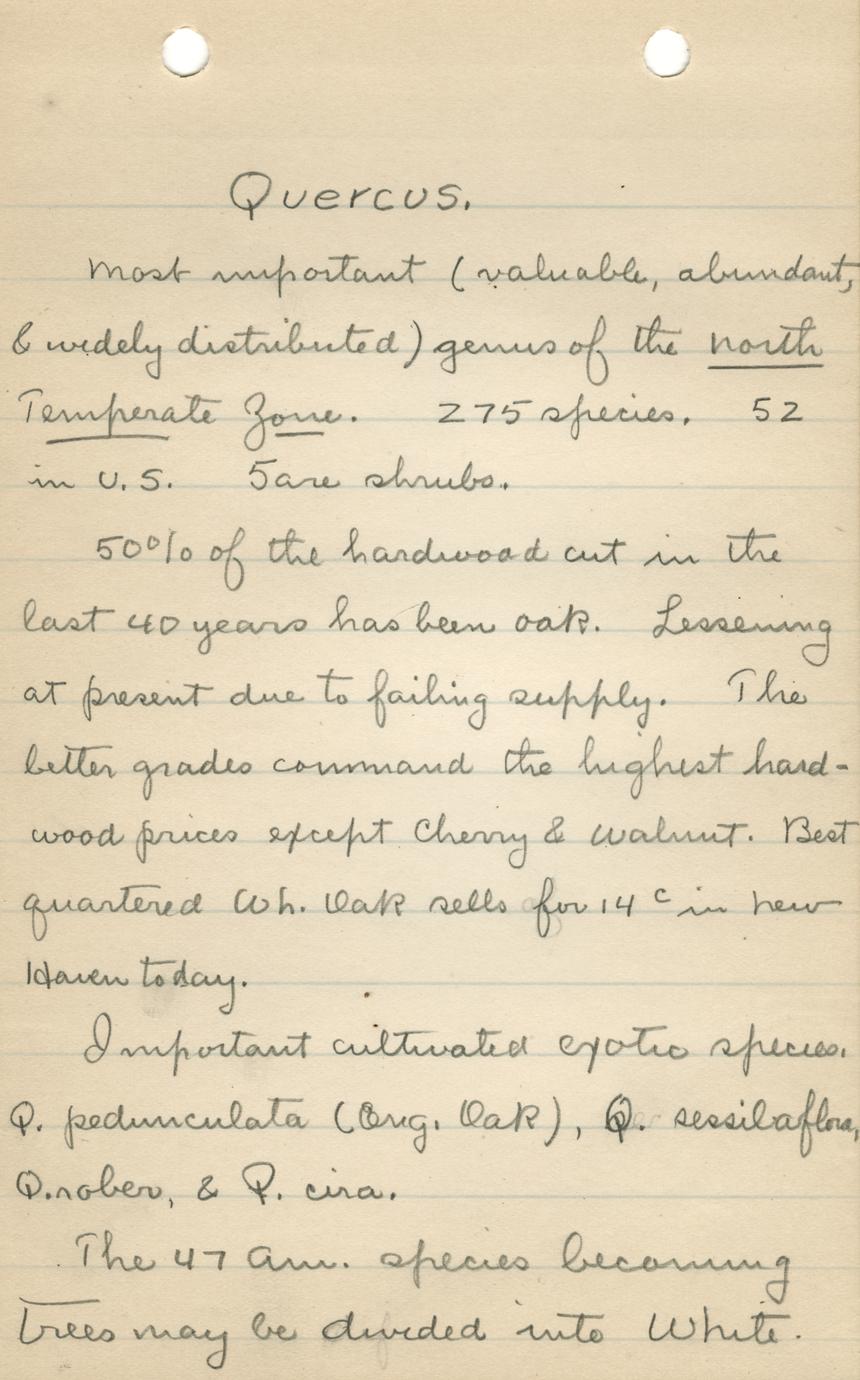 Quercus.
Most important (valuable, abundant,
& widely distributed) genus of the north
Temperate Zone. 275 species. 52
in U.S. 5 are shrubs.
50% of the hardwood cut in the
last 40 years has been oak. Lessening
at present due to failing supply. The
better grades command the highest hard-
wood prices except Cherry & Walnut. Best
quartered Wh. Oak sells for 14 c in new
Haven today.
Important cultivated exotic species.
Q. pedunculata (Eng. Oak), Q. sessilaflora,
Q. rober, & Q. cira.
The 47 Am. species becoming
trees may be divided into White.